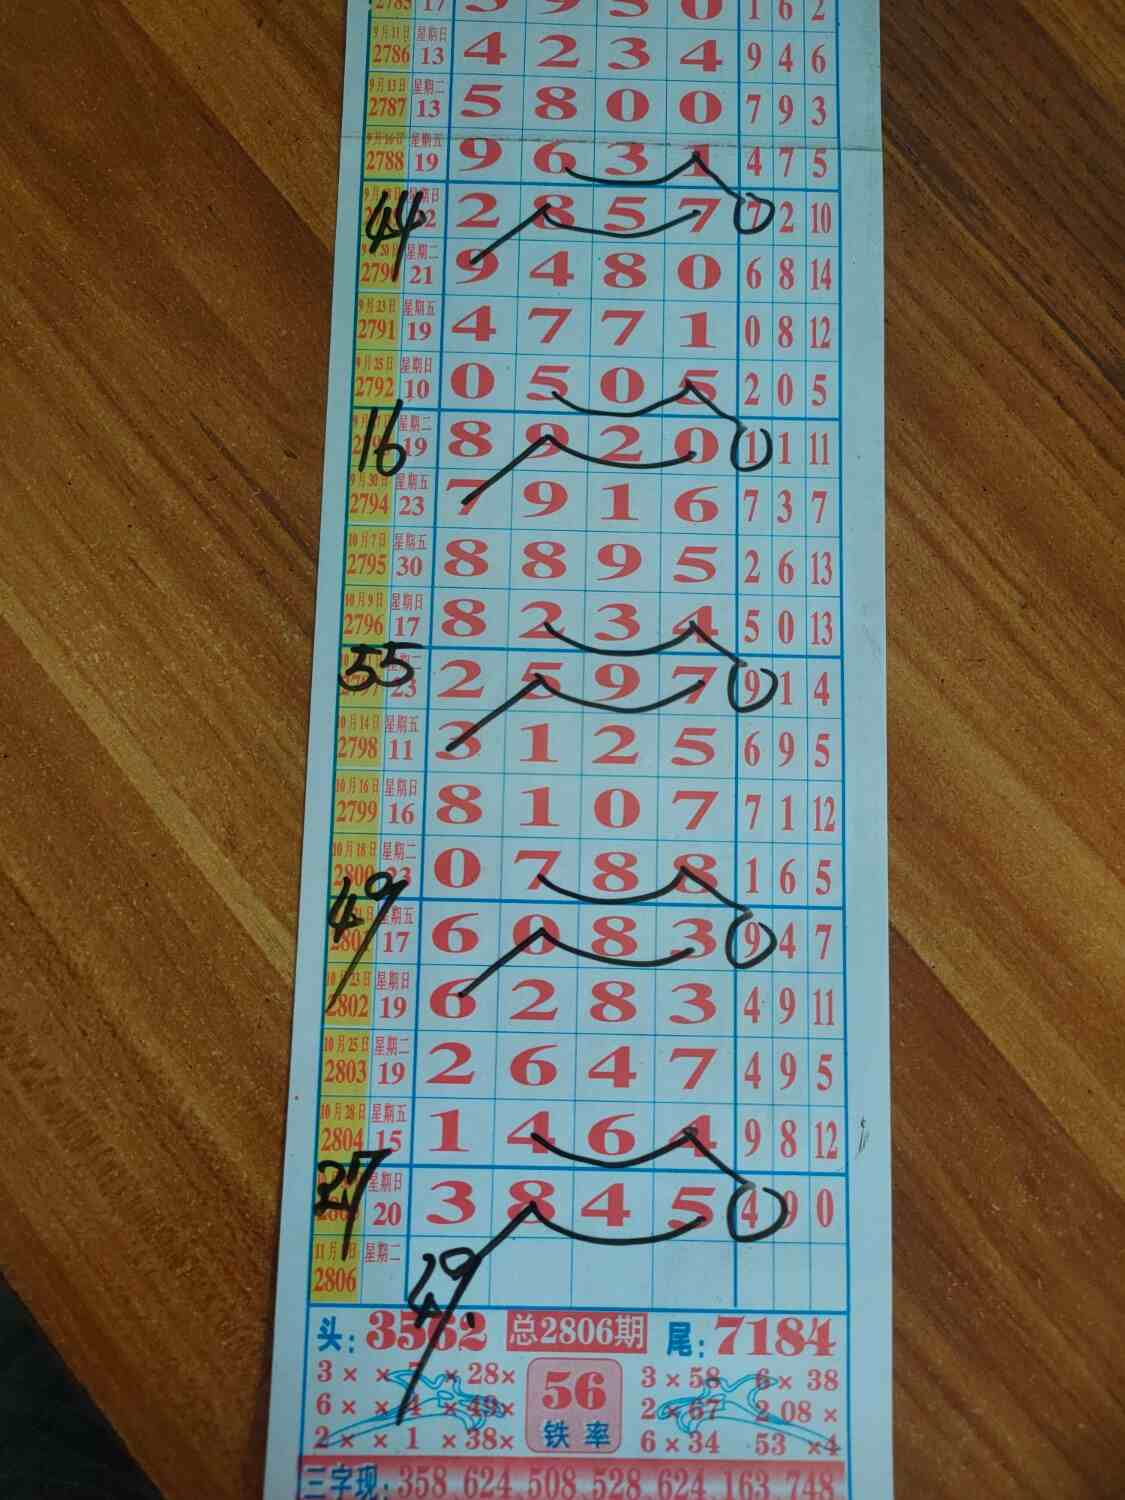 2785 17 5 9 5 0 1 6 2
9月11日 星期日
2786 13 4 2 3 4 9 4 6
9月13日 星期二
2787 13 5 8 0 0 7 9 3
9月16日 星期五
2788 19 9 6 3 1 4 7 5
星期日
44 2 8 5 7 7 2 10
星期二
2790 21 9 4 8 0 6 8 14
9月23日 星期五
2791 19 4 7 7 1 0 8 12
9月25日 星期日
2792 10 0 5 0 5 2 0 5
星期二
16 19 8 9 2 0 1 1 11
9月30日 星期五
2794 23 7 9 1 6 7 3 7
10月7日 星期五
2795 30 8 8 9 5 2 6 13
10月9日 星期日
2796 17 8 2 3 4 5 0 13
星期二
55 23 2 5 9 7 9 1 4
10月14日 星期五
2798 11 3 1 2 5 6 9 5
10月16日 星期日
2799 16 8 1 0 7 7 1 12
10月18日 星期二
2800 23 0 7 8 8 1 6 5
星期五
49 17 6 0 8 3 9 4 7
10月23日 星期日
2802 19 6 2 8 3 4 9 11
10月25日 星期二
2803 19 2 6 4 7 4 9 5
10月28日 星期五
2804 15 1 4 6 4 9 8 12
星期日
27 20 3 8 4 5 4 9 0
星期二
2806
49.
头:3562 总2806期 尾:7184
3 × × 7 × 28 × 3 × 58 6 × 38
6 × × 4 × 49 × 56 2 × 67 2 08 ×
2 × × 1 × 38 × 铁率 6 × 34 53 × 4
三字现:358 624 508 528 624 163 748